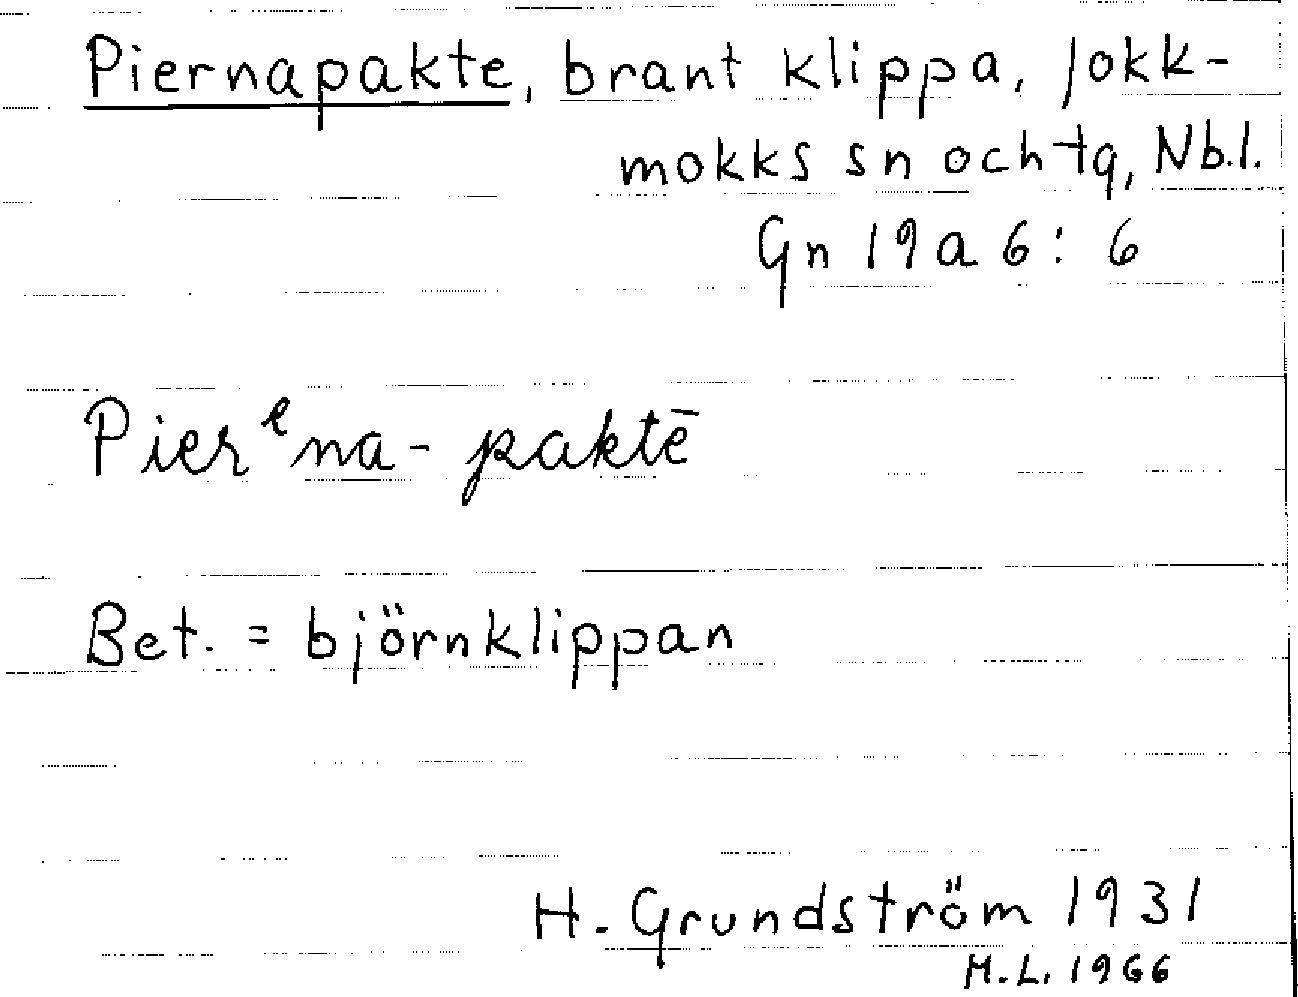 Piernapakte, brant klippa, Jokk-
mokks sn och tg, Nb.l.
Gn 19 a 6 : 6
Pierᵉna-paktē
Bet. = björnklippan
H. Grundström 1931
M.L. 1966